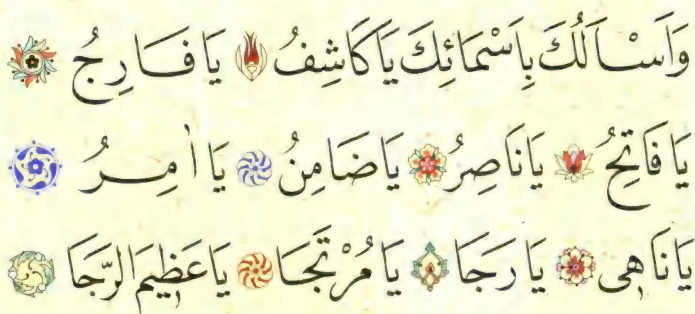 وَاَسْـاَلُكَ بِاَسْمَائِكَ يَا كَاشِفُ يَا فَـارِجُ
يَا فَاتِحُ يَا نَاصِرُ يَا ضَامِنُ يَا اٰمِـرُ
يَا نَاهِى يَا رَجَا يَا مُرْتَجَـا يَا عَظِيمَ الرَّجَا